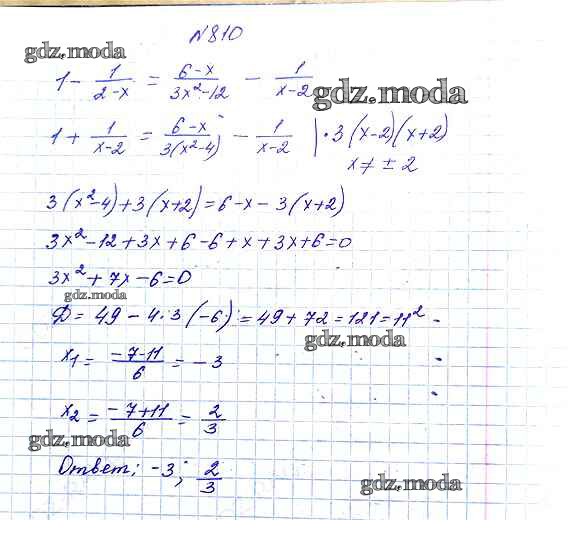 №810
gdz.moda
1 - 1/(2-x) = (6-x)/(3x²-12) - 1/(x-2)
gdz.moda
1 + 1/(x-2) = (6-x)/(3(x²-4)) - 1/(x-2) | · 3(x-2)(x+2)
x ≠ ± 2
3(x²-4)+3(x+2)=6-x-3(x+2)
3x²-12+3x+6-6+x+3x+6=0
3x²+7x-6=0
gdz.moda
Д= 49-4·3(-6)=49+72=121=11²
gdz.moda
x₁= (-7-11)/6 = -3
x₂= (-7+11)/6 = 2/3
gdz.moda
Ответ: -3; 2/3
gdz.moda